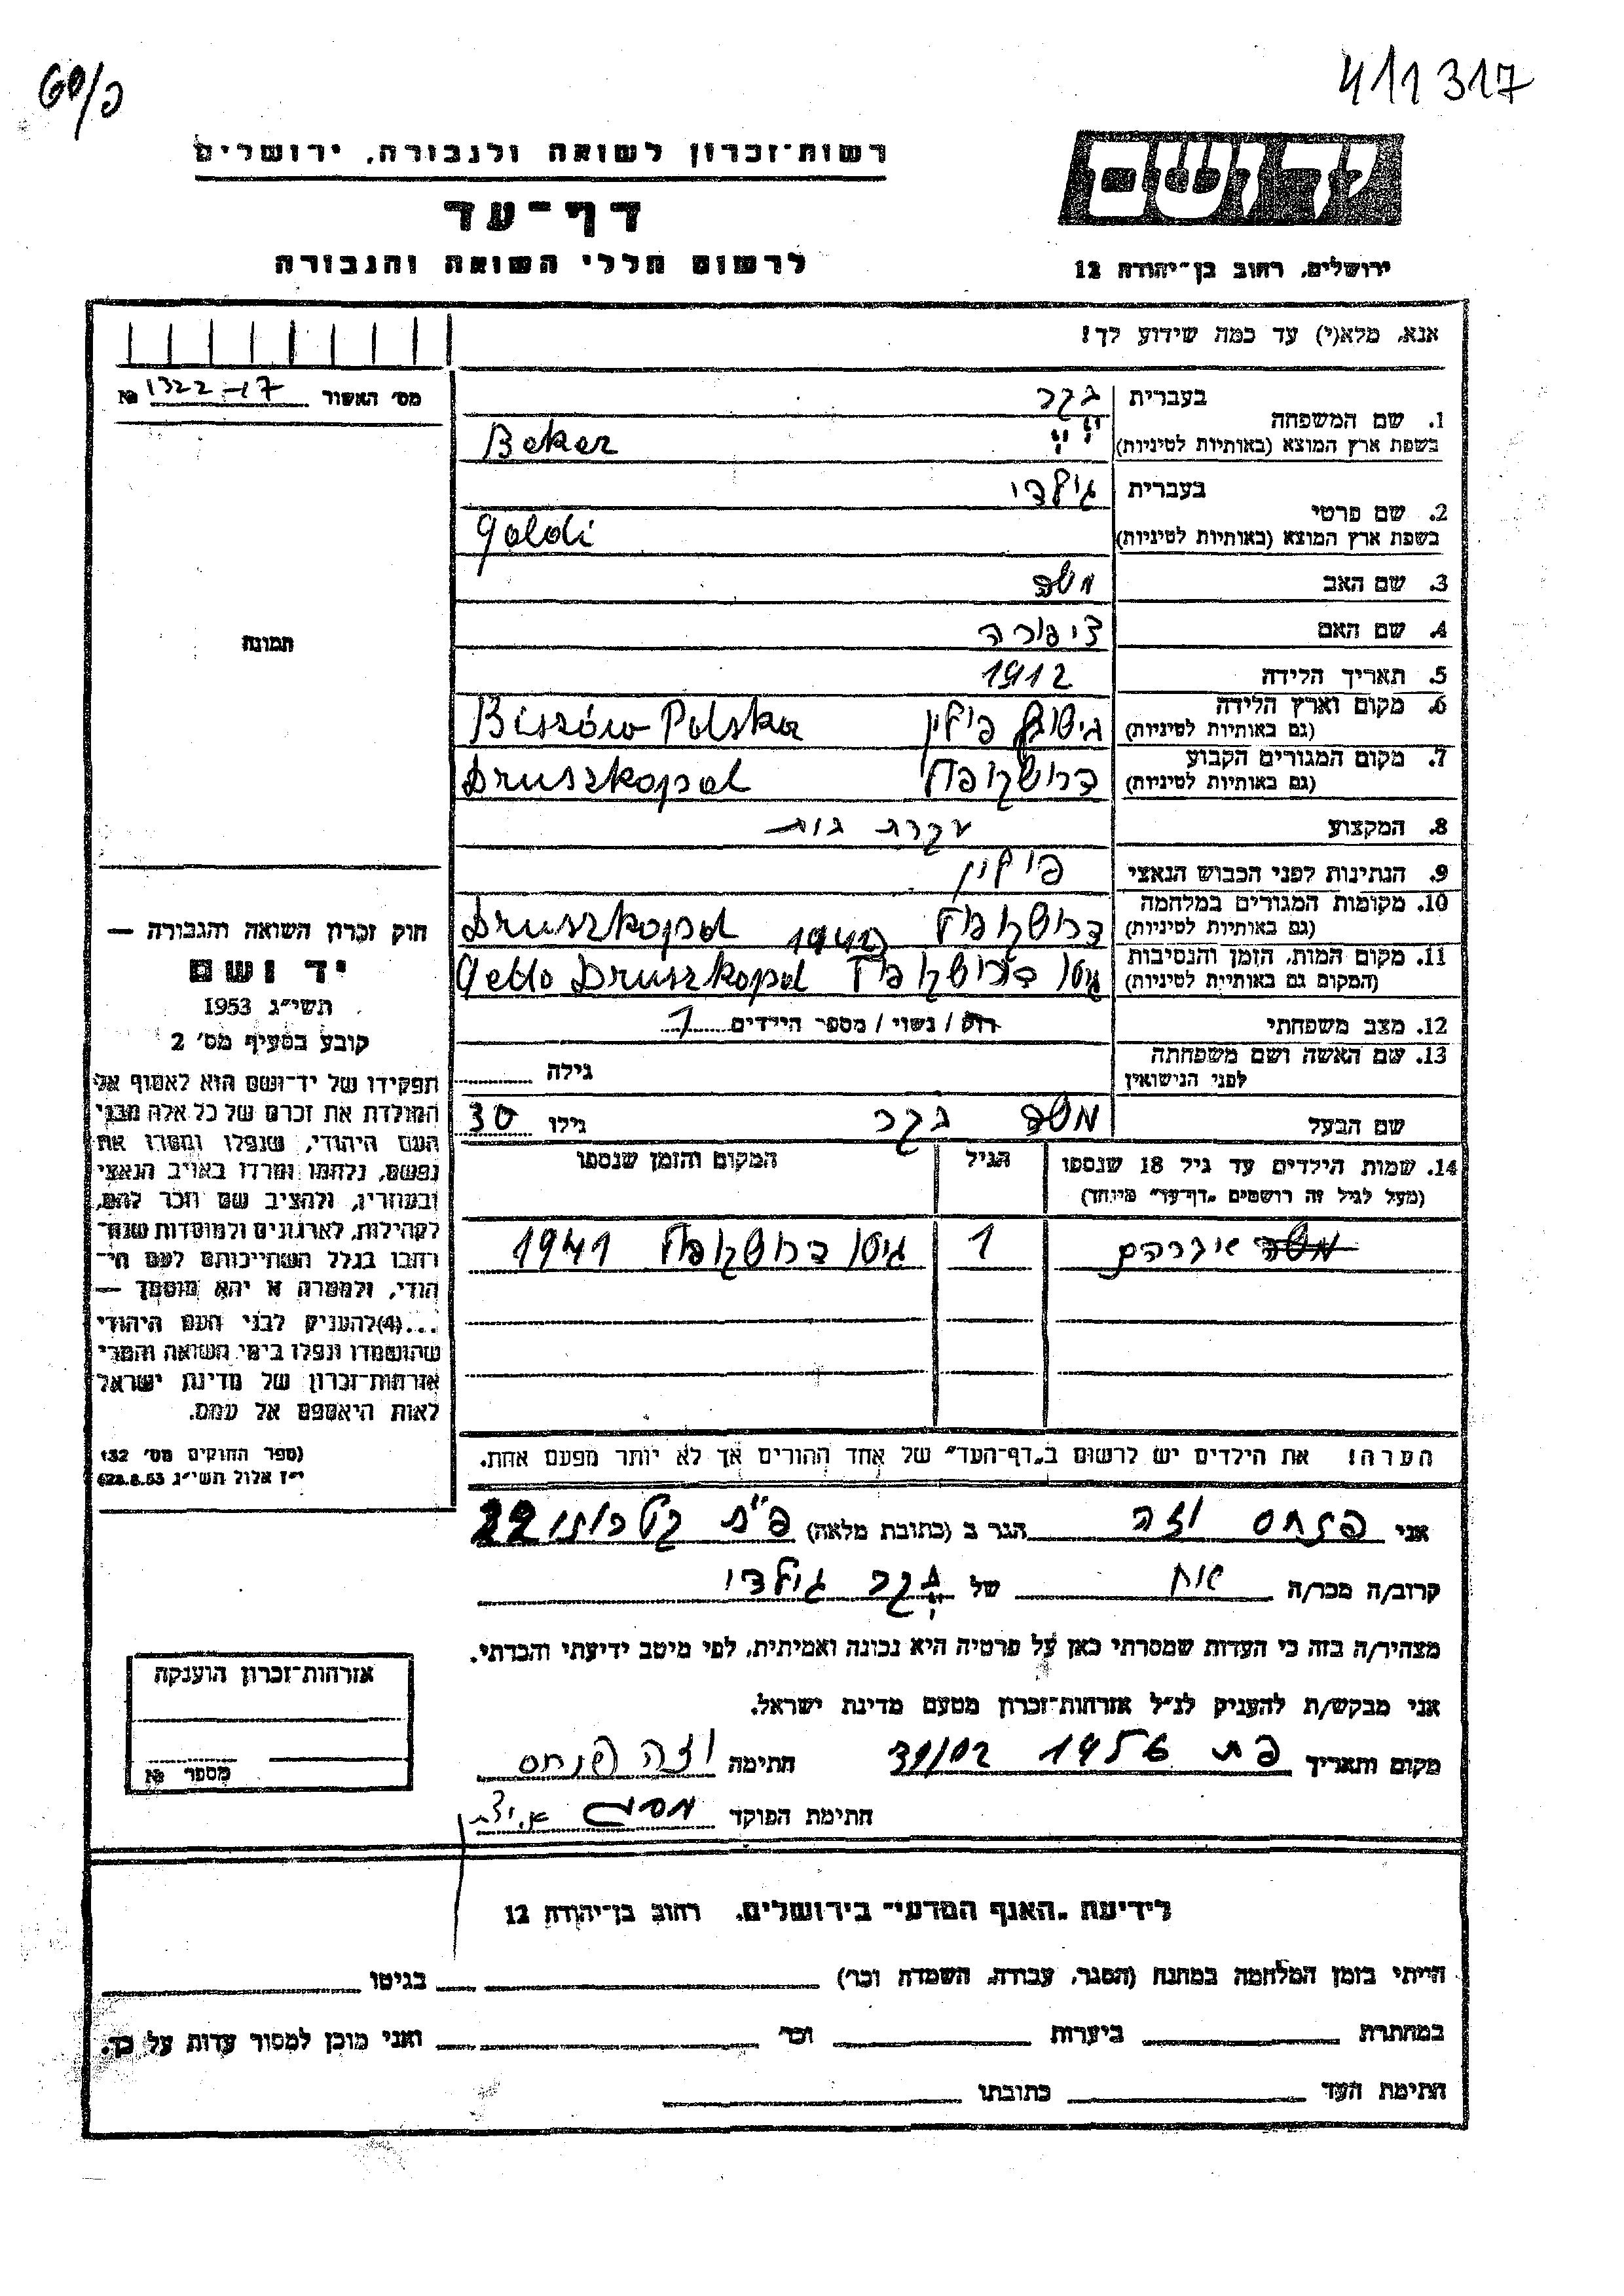 411317
רשות־זכרון לשואה ולגבורה, ירושלים
יד ושם
דף־עד
לרשום חללי השואה והגבורה
ירושלים, רחוב בן־יהודה 12
אנא, מלא(י) עד כמה שידוע לך!
מס׳ האשור 1322-17 №
1. שם המשפחה
בעברית בקר
בשפת ארץ המוצא (באותיות לטיניות) Beker
2. שם פרטי
בעברית גולדי
בשפת ארץ המוצא (באותיות לטיניות) Goldi
3. שם האב משה
4. שם האם ציפורה
5. תאריך הלידה 1912
6. מקום וארץ הלידה פולין Polska
(גם באותיות לטיניות)
7. מקום המגורים הקבוע דרושקופול Druszkopol
(גם באותיות לטיניות)
8. המקצוע עקרת בית
9. הנתינות לפני הכבוש הנאצי פולין
10. מקומות המגורים במלחמה דרושקופול Druszkopol
(גם באותיות לטיניות)
11. מקום המות, הזמן והנסיבות גיטו דרושקופול Getto Druszkopol
(המקום גם באותיות לטיניות)
12. מצב משפחתי רוק / נשוי / מספר הילדים 1
13. שם האשה ושם משפחתה
לפני הנישואין גילה
שם הבעל משה בקר גילו 30
14. שמות הילדים עד גיל 18 שנספו הגיל המקום והזמן שנספו
(מעל לגיל זה רושמים „דף־עד” מיוחד)
משה אברהם 1 גיטו דרושקופול 1941
הערה! את הילדים יש לרשום ב„דף־העד” של אחד ההורים אך לא יותר מפעם אחת.
תמונה
חוק זכרון השואה והגבורה —
יד ושם
תשי״ג 1953
קובע בסעיף מס׳ 2
תפקידו של יד־ושם הוא לאסוף אל
המולדת את זכרם של כל אלה מבני
העם היהודי, שנפלו ומסרו את
נפשם, נלחמו ומרדו באויב הנאצי
ובעוזריו, ולהציב שם וזכר להם,
לקהילות, לארגונים ולמוסדות שנח־
רבו בגלל השתייכותם לעם הי־
הודי, ולמטרה זו יהא מוסמך —
...(4) להעניק לבני העם היהודי
שהושמדו ונפלו בימי השואה והמרי
אזרחות־זכרון של מדינת ישראל
לאות היאספם אל עמם.
(ספר החוקים מס׳ 132
י״ז אלול תשי״ג 28.8.53)
אני פנחס וזה הגר ב (כתובת מלאה) פ״ת 22
קרוב/ה מכר/ה אח של בקר גולדי
מצהיר/ה בזה כי העדות שמסרתי כאן על פרטיה היא נכונה ואמיתית, לפי מיטב ידיעתי והכרתי.
אני מבקש/ת להעניק לנ״ל אזרחות־זכרון מטעם מדינת ישראל.
מקום ותאריך פת 1956 חתימה וזה פנחס
חתימת הפוקד
אזרחות־זכרון הוענקה
מספר №
לידיעת „האגף המדעי” בירושלים, רחוב בן־יהודה 12
הייתי בזמן המלחמה במחנה (הסגר, עבודה, השמדה וכו׳) בגיטו
במחתרת ביערות וכו׳ ואני מוכן למסור עדות על כך.
חתימת העד כתובתו